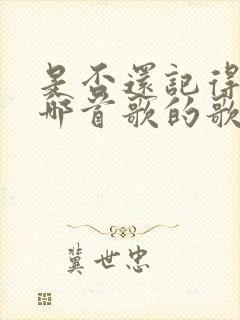 是否還記得
那首歌的歌
冀世忠